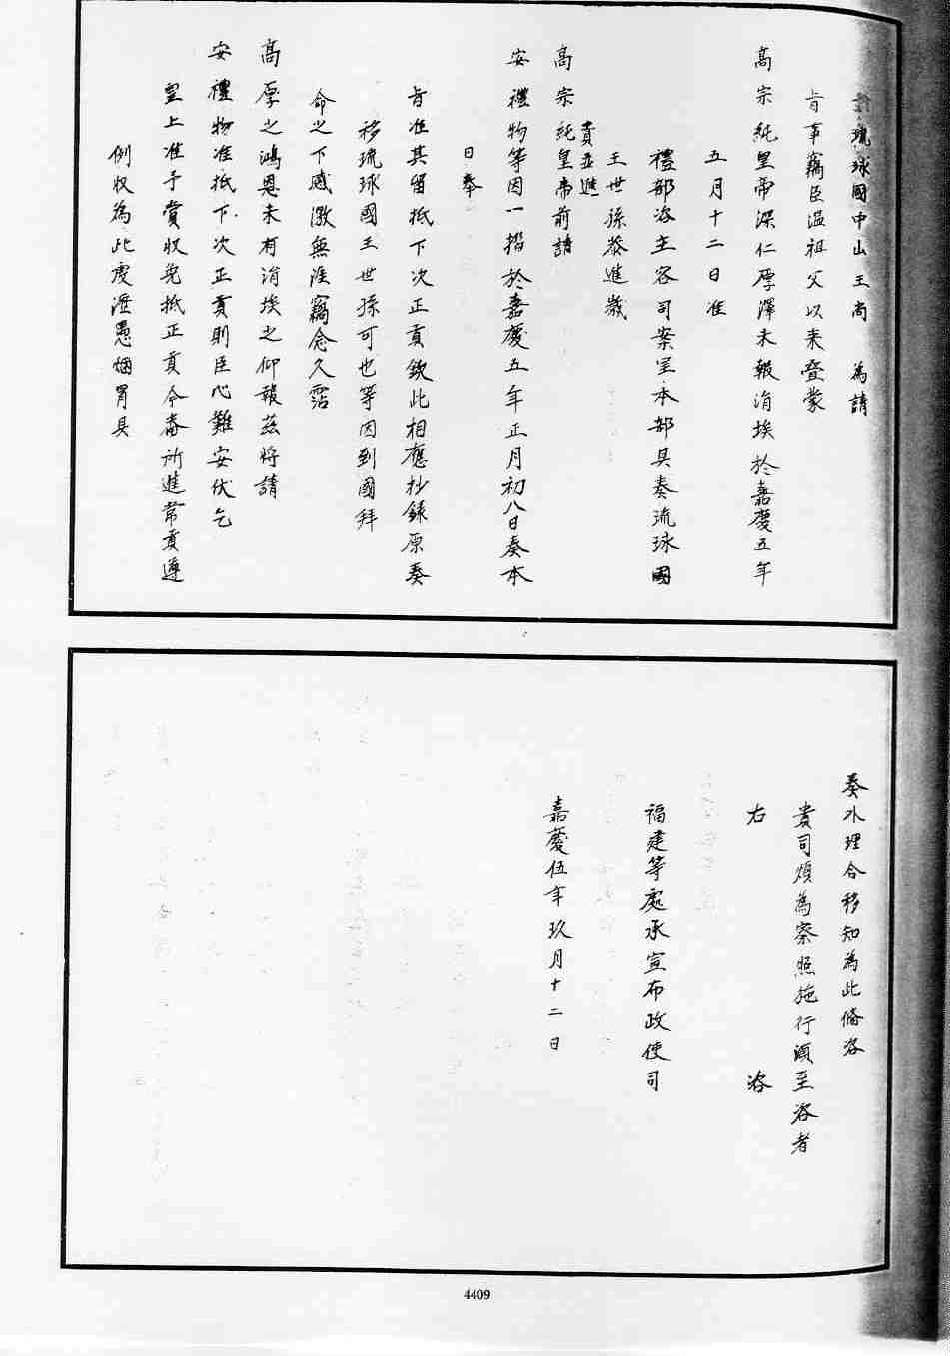 琉球國中山王尚　為請
旨事竊臣温祖父以来疊蒙
高宗純皇帝深仁厚澤未報涓埃於嘉慶五年
五月十二日准
禮部咨主客司案呈本部具奏琉球國
王世孫恭進歲
貢並進
高宗純皇帝前請
安禮物等因一摺於嘉慶五年正月初八日奏本
日奉
旨准其留抵下次正貢欽此相應抄錄原奏
移琉球國王世孫可也等因到國拜
命之下感激無涯竊念久霑
高厚之鴻恩未有涓埃之仰報兹將請
安禮物准抵下次正貢則臣心難安伏乞
皇上准予賞收免抵正貢令番所進常貢遵
例收為此虔瀝愚悃肯具
奏外理合移知為此備咨
貴司煩為察照施行須至咨者
右　咨
福建等處承宣布政使司
嘉慶伍年玖月十二日
4409